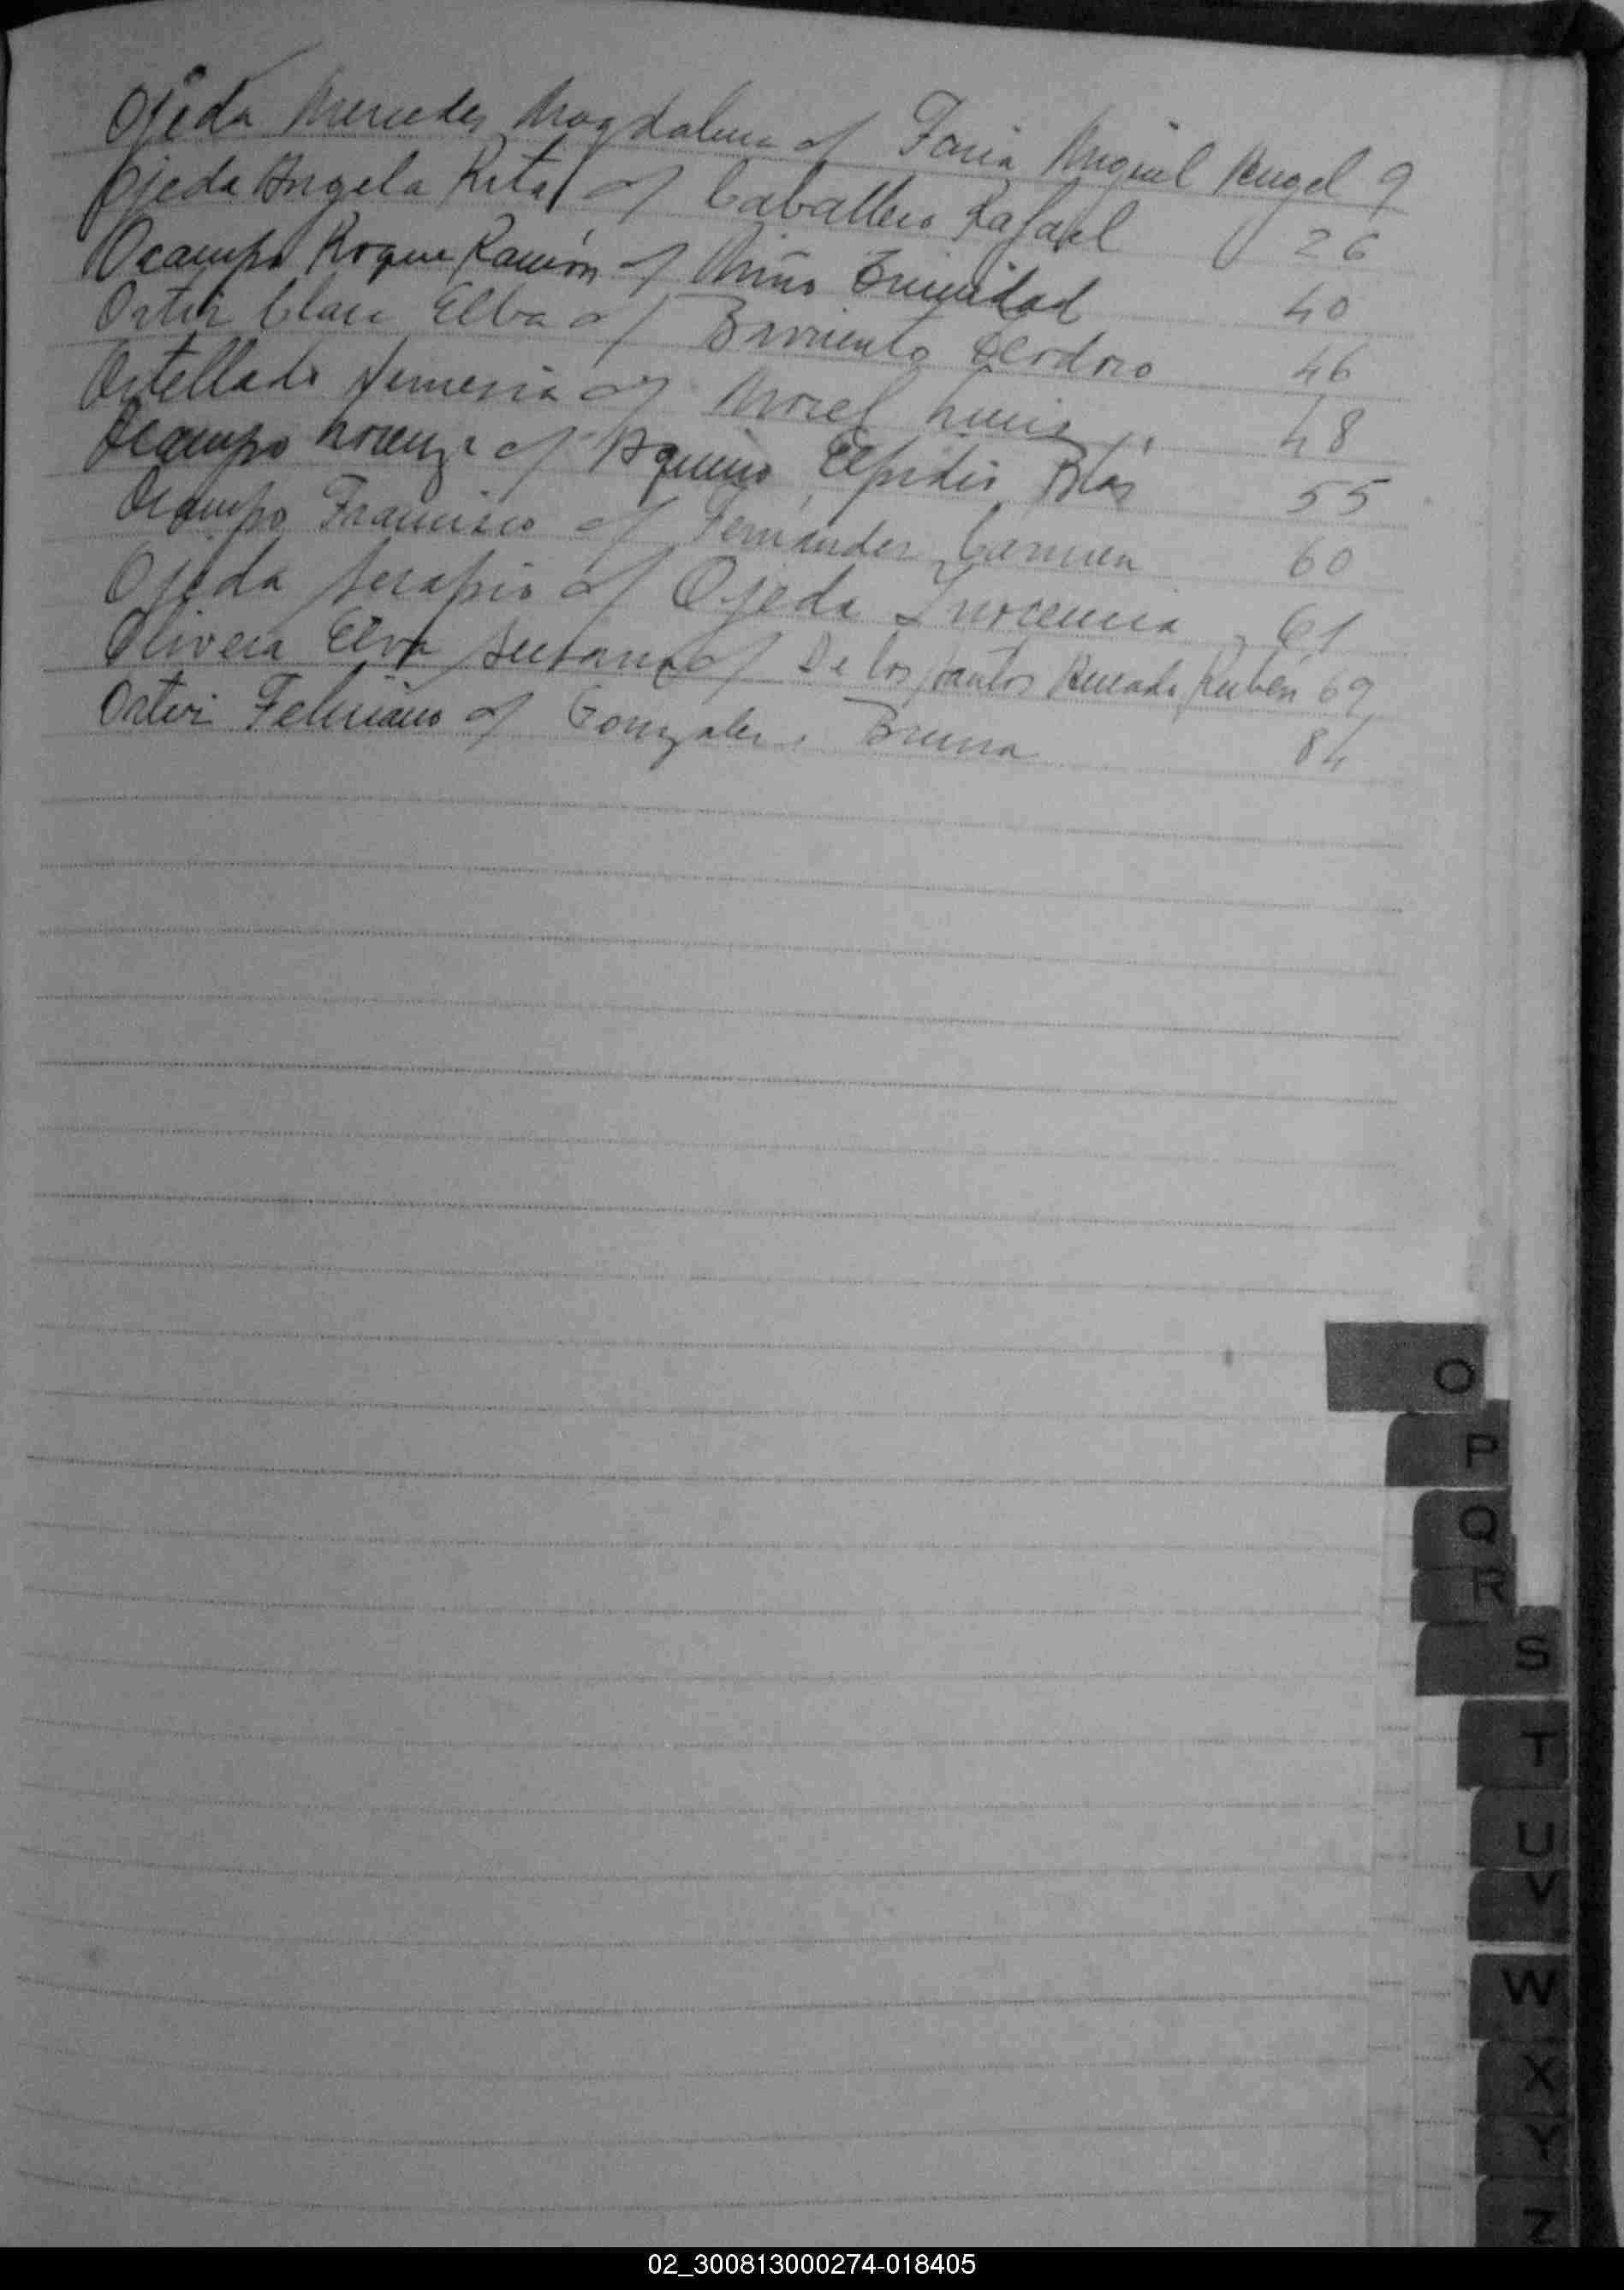 Ojeda Mercedes Magdalena c/ Faria Miguel Angel 9
Ojeda Angela Rita c/ Caballero Rafael 26
Ocampo Roque Ramón c/ Miño Trinidad 40
Ortiz Clara Elba c/ Barriento 46
Ortellado Nemesia c/ Morel Luis 48
Ocampo Lorenza c/ Aquino Elpidio Blas 55
Ocampo Francisco c/ Fernández Carmen 60
Ojeda Serapio c/ Ojeda Inocencia 61
Olivera Elva Susana c/ De los Santos Rubén 69
Ortiz Feliciano c/ Gonzalez Bruna 84
O
P
Q
R
S
T
U
V
W
X
Y
Z
02_300813000274-018405